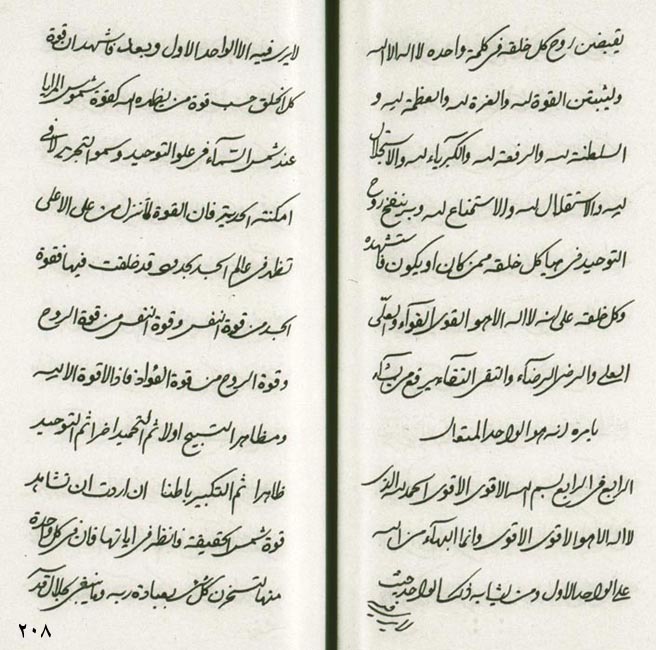 يقبضن روح كل خلقه في كلمة واحده لا اله الا الله
وليثبتن القوة لله والعزة لله والعظمة لله و
السلطنة لله والرفعة لله والكبرياء لله والاستجلال
لله والاستقلال لله والاستمناع لله وبه ينفخ روح
التوحيد في هياكل خلقه ممن كان او يكون فاستشهده
وكل خلقه على انه لا اله الا هو القوي القواء والعلي
العلي والرضي الرضاء والنقي النقاء يرفع من يشاء
بامره انه هو الواحد المتعال
الرابع في الرابع بسم الله الاقوى الاقوى الحمد لله الذي
لا اله الا هو الاقوى الاقوى وانما البهاء من الله
على الواحد الاول ومن يشابه ذلك الواحد حيث
لا يرى فيه الا الواحد الاول وبعد فاشهد ان قوة
كل الخلق حسب قوة من يظهره الله كقوة شموس المرايا
عند شمس السماء في علو التوحيد وسمو التجريد لا في
امكنته الحدية فان القوة لما تنزل من على الاعلى
تظهر في عالم الجسد بجسد قد خلقت فيها فقوة
الجسد من قوة النفس وقوة النفس من قوة الروح
وقوة الروح من قوة الفؤاد فاذا لا قوة الا لله
ومظاهر التسبيح اولا ثم التحميد اخرا ثم التوحيد
ظاهرا ثم التكبير باطنا ان اردت ان تشاهد
قوة شمس الحقيقة فانظر في اياتها فان في كل واحدة
منها لتسخرن كل شيء بعبادة ربه وما ينبغي لجلال قد
٢٠٨